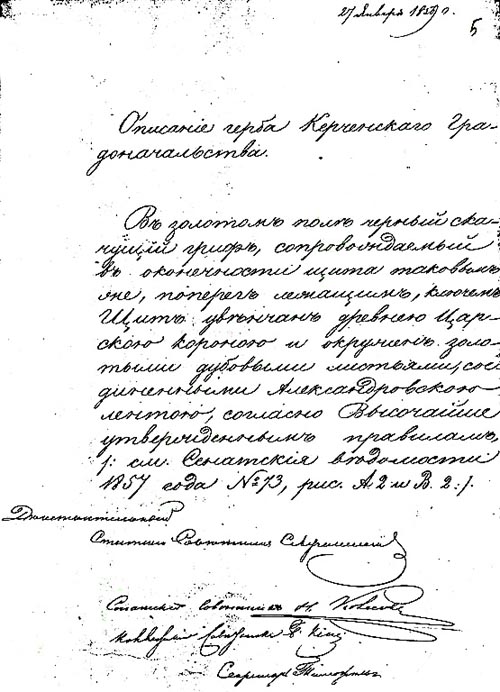 27 Января 1859 г.
5
Описаніе герба Керченскаго Гра-
доначальства.
Въ золотомъ полѣ черный ска-
чущій грифъ, сопровождаемый
въ оконечности щита таковымъ
же, поперегъ лежащимъ, ключемъ
Щитъ увѣнчанъ древнею Цар-
скою короною и окруженъ золо-
тыми дубовыми листьями, сое
диненными Александровскою
лентою, согласно Высочайше
утвержденнымъ правиламъ,
/: см. Сенатскія вѣдомости
1857 года № 73, рис. А. 2 и В. 2 :/.
Дѣйствительный
Статскій Совѣтникъ
Статскій Совѣтникъ
Секретарь